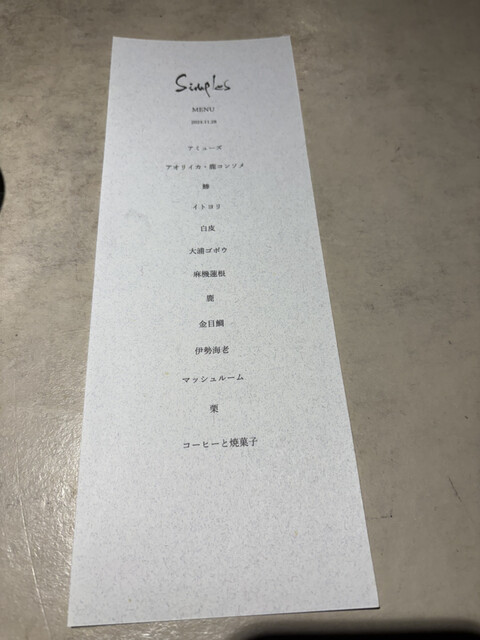 Simples
MENU
2024.11.28
アミューズ
アオリイカ・鹿コンソメ
鰆
イトヨリ
白皮
大浦ゴボウ
麻機蓮根
鹿
金目鯛
伊勢海老
マッシュルーム
栗
コーヒーと焼菓子